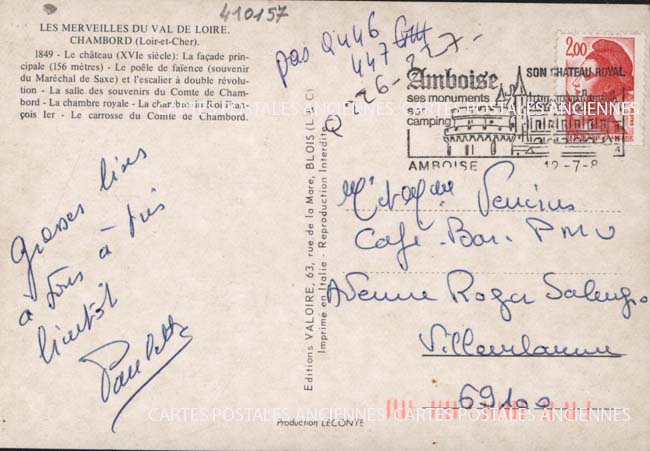 410157
LES MERVEILLES DU VAL DE LOIRE.
CHAMBORD (Loir-et-Cher).
1849 - Le château (XVIe siècle): La façade prin-
cipale (156 mètres) - Le poêle de faïence (souvenir
du Maréchal de Saxe) et l'escalier à double révolu-
tion - La salle des souvenirs du Comte de Cham-
bord - La chambre royale - La chambre de Fran-
çois Ier - Le carrosse du Comte de Chambord.
pas au 46
447
226-227-
Amboise
ses monuments
son
camping
SON CHATEAU ROYAL
AMBOISE
12-7-8
2,00
Grosses bises
à tous à très
bientôt
Paulette
Editions VALOIRE, 63, rue de la Mare, BLOIS (L.&C)
Imprimé en Italie - Reproduction Interdite
Mr et Mme
Café-Bar-PMU
Avenue Roger Salengro
Villeurbanne
69100
CARTES POSTALES ANCIENNES CARTES POSTALES ANCIENNES
Production LECONTE